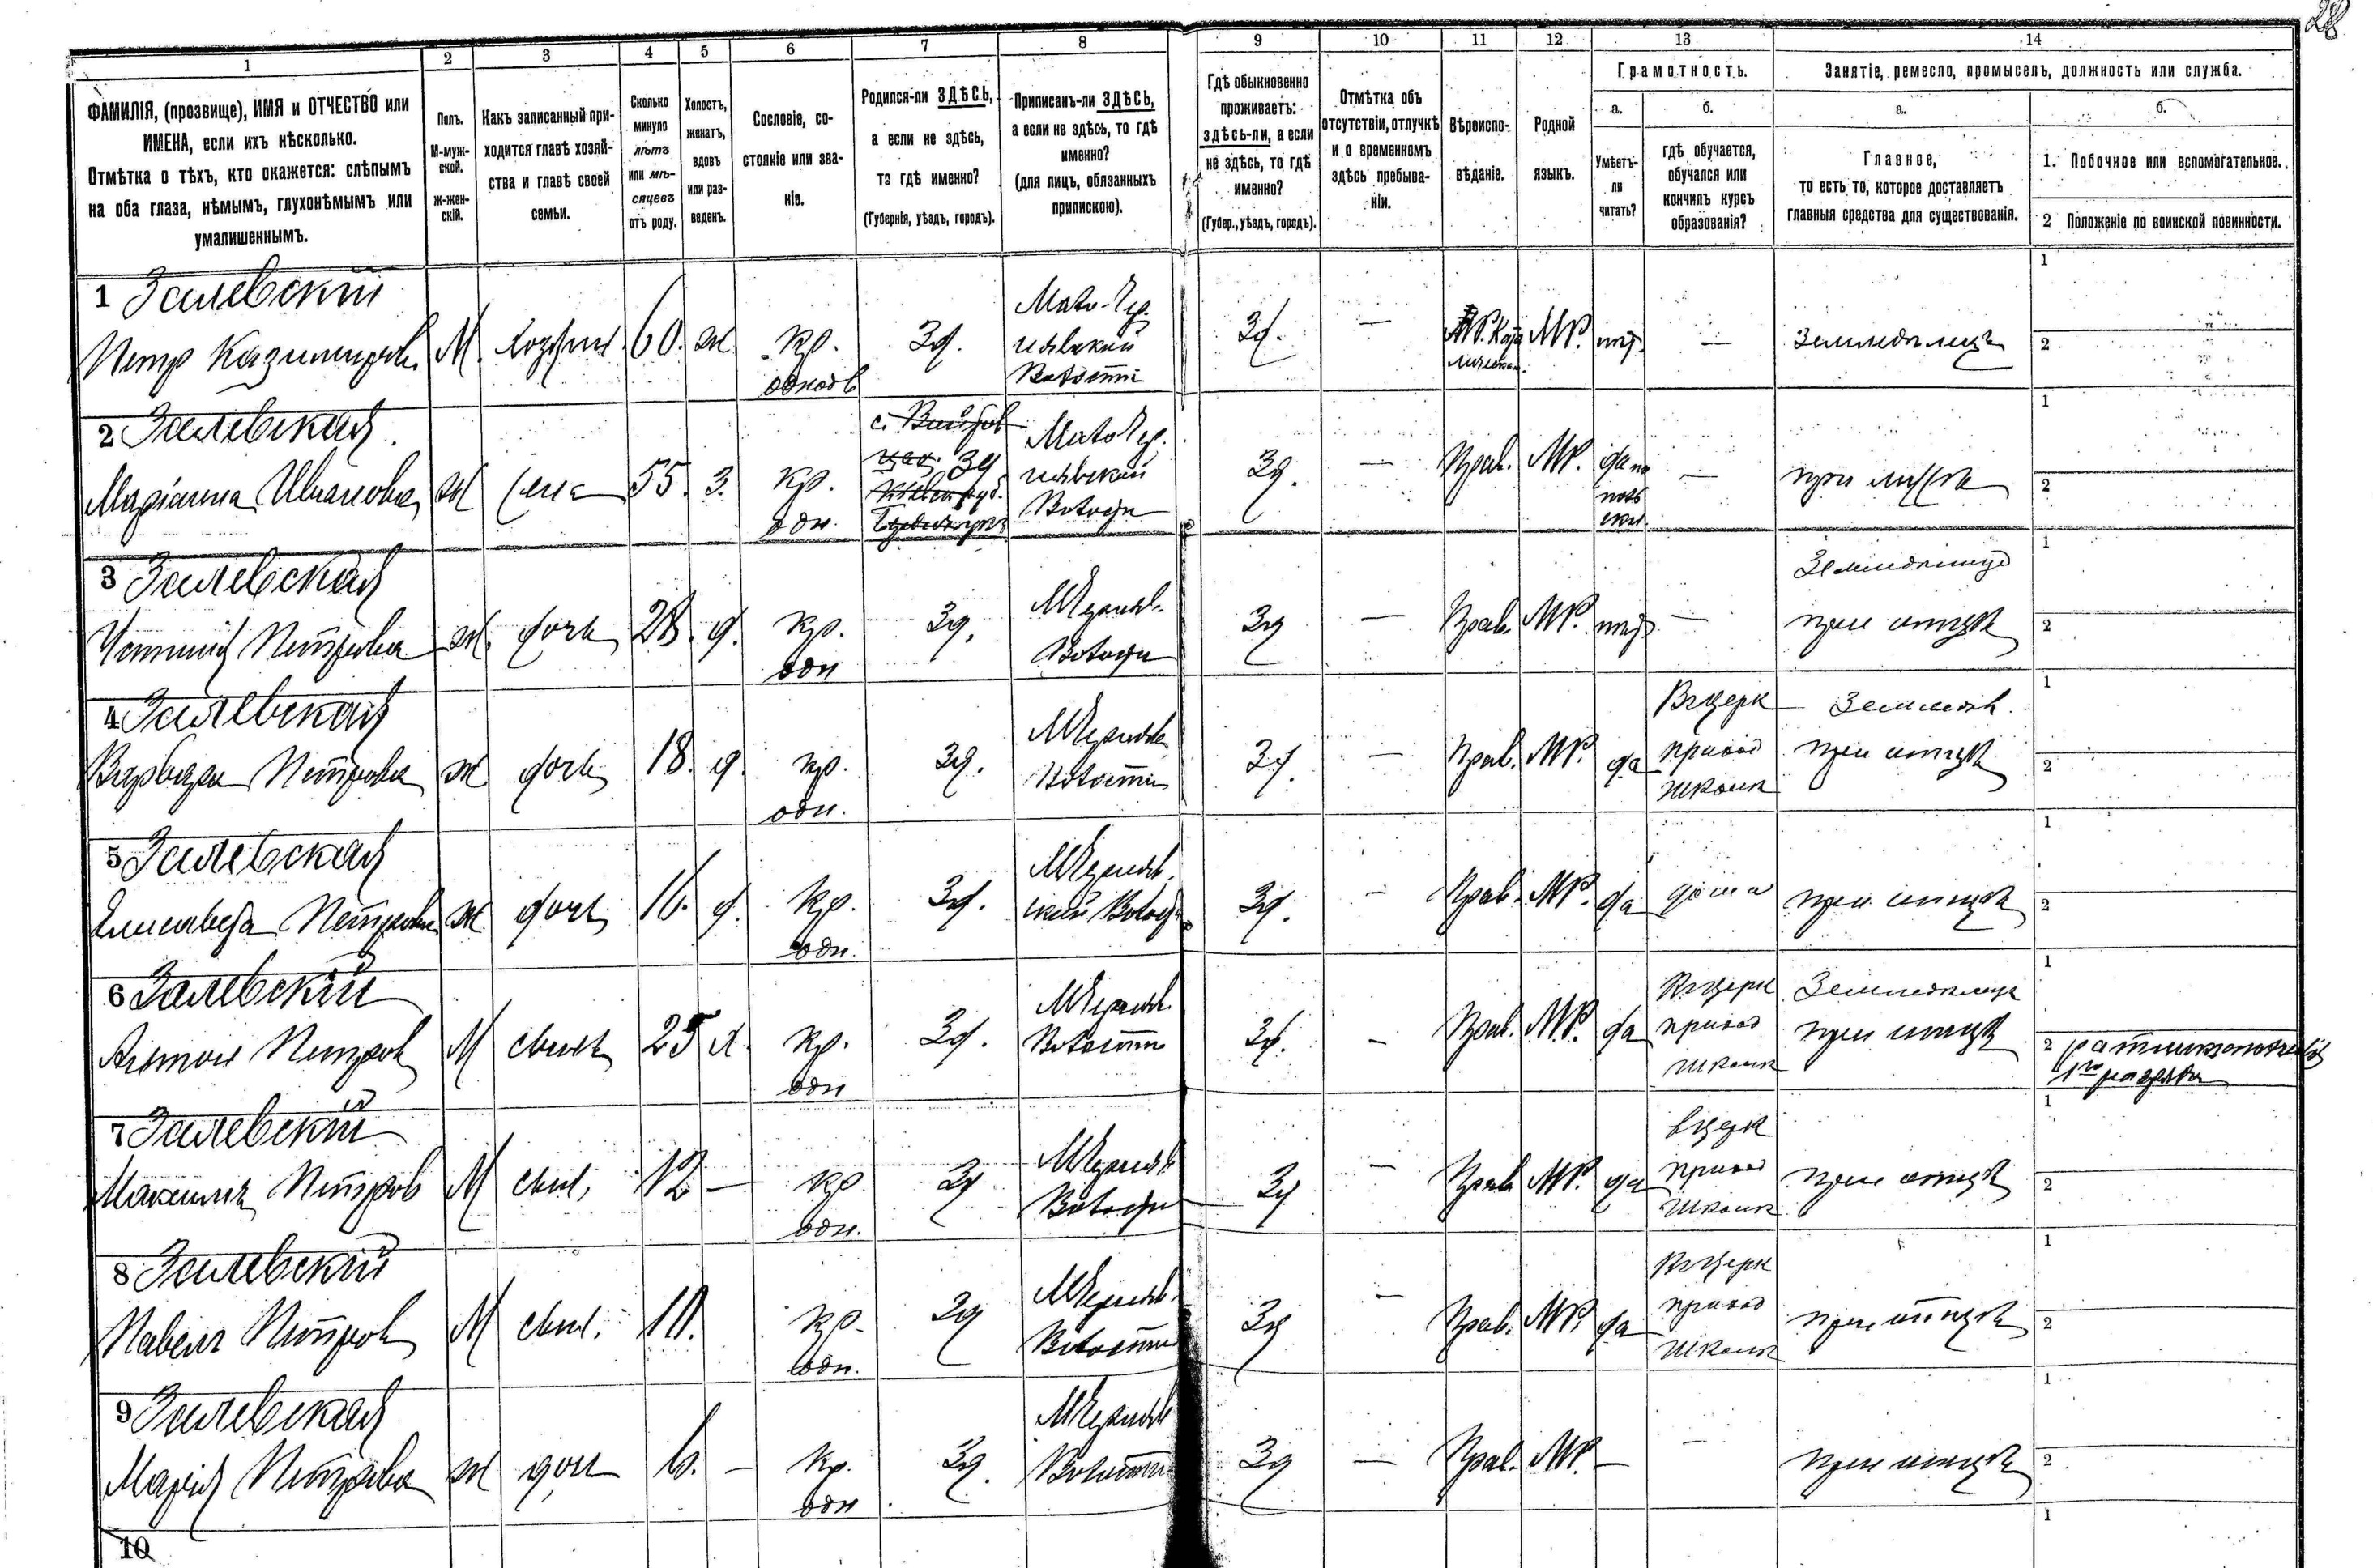 28
1 2 3 4 5 6 7 8 9 10 11 12 13 14
ФАМИЛІЯ, (прозвище), ИМЯ и ОТЧЕСТВО или
ИМЕНА, если ихъ нѣсколько.
Отмѣтка о тѣхъ, кто окажется: слѣпымъ
на оба глаза, нѣмымъ, глухонѣмымъ или
умалишеннымъ.
Полъ.
М-муж-
ской.
ж-жен-
скій.
Какъ записанный при-
ходится главѣ хозяй-
ства и главѣ своей
семьи.
Сколько
минуло
лѣтъ
или мѣ-
сяцевъ
отъ роду.
Холостъ,
женатъ,
вдовъ
или раз-
веденъ.
Сословіе, со-
стояніе или зва-
ніе.
Родился-ли ЗДѢСЬ,
а если не здѣсь,
то гдѣ именно?
(Губернія, уѣздъ, городъ).
Приписанъ-ли ЗДѢСЬ,
а если не здѣсь, то гдѣ
именно?
(для лицъ, обязанныхъ
припискою).
Гдѣ обыкновенно
проживаетъ:
здѣсь-ли, а если
не здѣсь, то гдѣ
именно?
(Губер., уѣздъ, городъ).
Отмѣтка объ
отсутствіи, отлучкѣ
и о временномъ
здѣсь пребыва-
ніи.
Вѣроиспо-
вѣданіе.
Родной
языкъ.
Грамотность.
а.
Умѣетъ-
ли
читать?
б.
гдѣ обучается,
обучался или
кончилъ курсъ
образованія?
Занятіе, ремесло, промыселъ, должность или служба.
а.
Главное,
то есть то, которое доставляетъ
главныя средства для существованія.
б.
1. Побочное или вспомогательное.
2 Положеніе по воинской повинности.
1 Залевскій
Петр Казимиров М. хозяин. 60. ж кр. Зд. Зд. — МР. — Земледѣлецъ
однод
Волости
2 Залевская
Маріанна Ивановна ж жена 55. з. кр. Зд Зд. — Прав. МР. да — при мужѣ
одн.
3 Залевская
Земледѣлица
Петровна ж. дочь 28. д. кр. Зд. Зд — Прав. МР. — при отцѣ
одн
4 Залевская
Варвара Петровна ж дочь 18. д. кр. Зд. Волости Зд. — Прав. МР. да при отцѣ
Вцерк
приход
школѣ
одн.
5 Залевская
Елисавета Петровна ж дочь 16. д. кр. Зд. Зд. — Прав. МР. да дома при отцѣ
одн.
6 Залевскій
Антон Петров М сынъ 25 х. кр. Зд. Волости Зд. — Прав. МР. да при отцѣ
Вцерк
приход
школѣ
Земледѣлецъ
одн
2 ратникополченія
1го разряда
7 Залевскій
Максимъ Петров М сын. 12 — кр. Зд Зд — Прав МР. да при отцѣ
вцерк
приход
школѣ
одн.
8 Залевскій
Павелъ Петров М сын. кр. Зд Волости Зд — Прав. МР. да при отцѣ
Вцерк
приход
школѣ
одн.
9 Залевская
Марія Петровна ж доч — кр. Зд. Волости Зд — Прав. МР. — — при отцѣ
одн
10